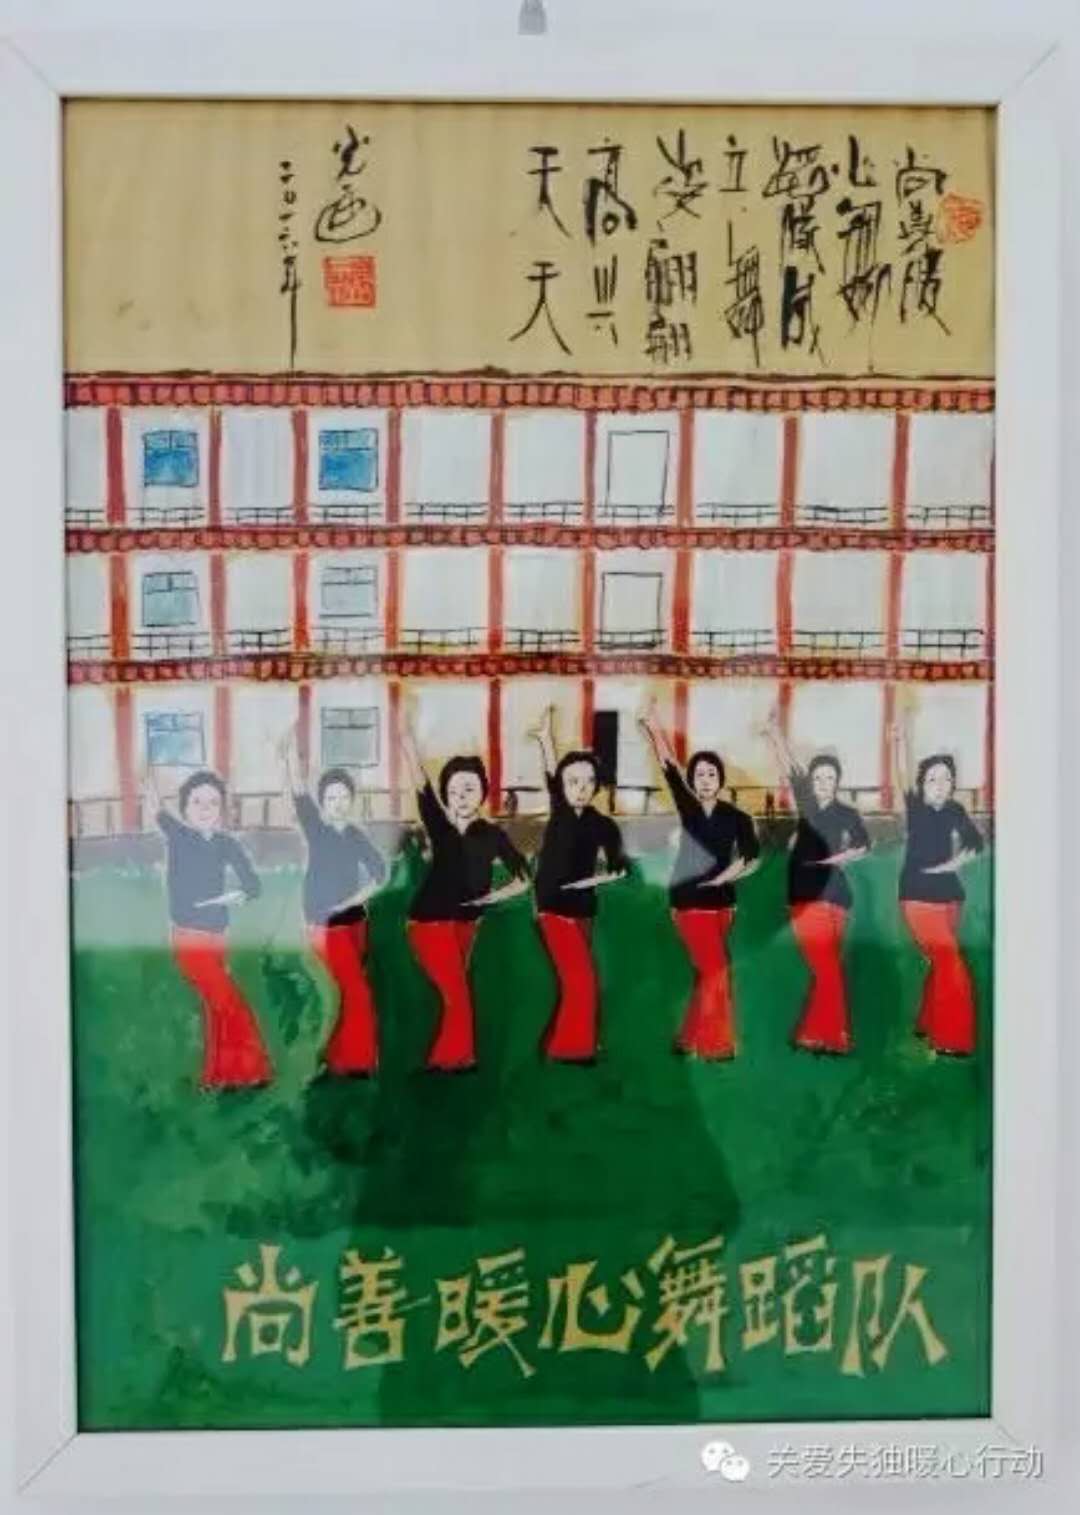 尚善暖
心舞
蹈隊成
立舞
姿翩翩
高兴
天天
二〇一六年
尚善暖心舞蹈队
关爱失独暖心行动